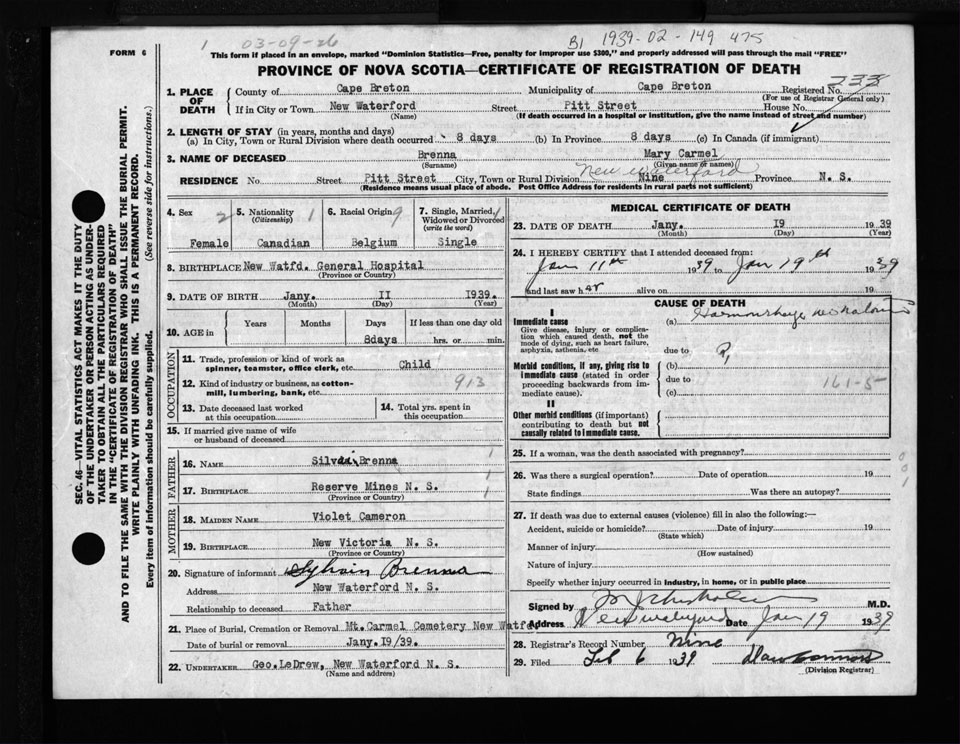 1 03-09-26
B1 1939-02-149 475
FORM 6
This form if placed in an envelope, marked "Dominion Statistics—Free, penalty for improper use $300," and properly addressed will pass through the mail "FREE"
PROVINCE OF NOVA SCOTIA—CERTIFICATE OF REGISTRATION OF DEATH
SEC. 46—VITAL STATISTICS ACT MAKES IT THE DUTY
OF THE UNDERTAKER OR PERSON ACTING AS UNDER-
TAKER TO OBTAIN ALL THE PARTICULARS REQUIRED
IN THE "CERTIFICATE OF REGISTRATION OF DEATH"
AND TO FILE THE SAME WITH THE DIVISION REGISTRAR WHO SHALL ISSUE THE BURIAL PERMIT.
WRITE PLAINLY WITH UNFADING INK. THIS IS A PERMANENT RECORD.
Every item of information should be carefully supplied. (See reverse side for instructions.)
1. PLACE OF DEATH
County of Cape Breton Municipality of Cape Breton Registered No. 733
(For use of Registrar General only)
If in City or Town New Waterford Street Pitt Street House No.
(Name) (If death occurred in a hospital or institution, give the name instead of street and number)
2. LENGTH OF STAY (in years, months and days)
(a) In City, Town or Rural Division where death occurred 8 days (b) In Province 8 days (c) In Canada (if immigrant)
3. NAME OF DECEASED Brenna Mary Carmel
(Surname) (Given name or names)
New Waterford
RESIDENCE No. Street Pitt Street City, Town or Rural Division Nine Province N. S.
(Residence means usual place of abode. Post Office Address for residents in rural parts not sufficient)
4. Sex 2 5. Nationality 1 6. Racial Origin 9 7. Single, Married, 1
(Citizenship) Widowed or Divorced
(write the word)
Female Canadian Belgium Single
8. BIRTHPLACE New Watfd. General Hospital
(Province or Country)
9. DATE OF BIRTH Jany. II 1939.
(Month) (Day) (Year)
10. AGE in Years Months Days If less than one day old
8days hrs. or min.
OCCUPATION
11. Trade, profession or kind of work as
spinner, teamster, office clerk, etc. Child
12. Kind of industry or business, as cotton- 913
mill, lumbering, bank, etc.
13. Date deceased last worked 14. Total yrs. spent in
at this occupation this occupation
15. If married give name of wife
or husband of deceased
FATHER
16. NAME Brenna 1
17. BIRTHPLACE Reserve Mines N. S. 1
(Province or Country)
MOTHER
18. MAIDEN NAME Violet Cameron
19. BIRTHPLACE New Victoria N. S.
(Province or Country)
20. Signature of informant Sylvain Brenna
Address New Waterford N. S.
Relationship to deceased Father
21. Place of Burial, Cremation or Removal Mt. Carmel Cemetery New Watfd
Date of burial or removal Jany. I9/39.
22. UNDERTAKER Geo. LeDrew, New Waterford N. S.
(Name and address)
MEDICAL CERTIFICATE OF DEATH
23. DATE OF DEATH Jany. I9 1939
(Month) (Day) (Year)
24. I HEREBY CERTIFY that I attended deceased from:
Jan 11th 1939 to Jan 19th 1939
and last saw her alive on 19
CAUSE OF DEATH
I
Immediate cause (a)
Give disease, injury or complica-
tion which caused death, not the
mode of dying, such as heart failure,
asphyxia, asthenia, etc due to
Morbid conditions, if any, giving rise to (b)
immediate cause (stated in order due to 161-5
proceeding backwards from im-
mediate cause). (c)
II
Other morbid conditions (if important)
contributing to death but not
causally related to immediate cause.
25. If a woman, was the death associated with pregnancy? 0
0
26. Was there a surgical operation? Date of operation 19 1
State findings Was there an autopsy?
27. If death was due to external causes (violence) fill in also the following:—
Accident, suicide or homicide? Date of injury 19
(State which)
Manner of injury
(How sustained)
Nature of injury
Specify whether injury occurred in industry, in home, or in public place
Signed by M.D.
Address New Waterford Date Jan 19 1939
28. Registrar's Record Number Nine
29. Filed Feb 6 1939
(Division Registrar)